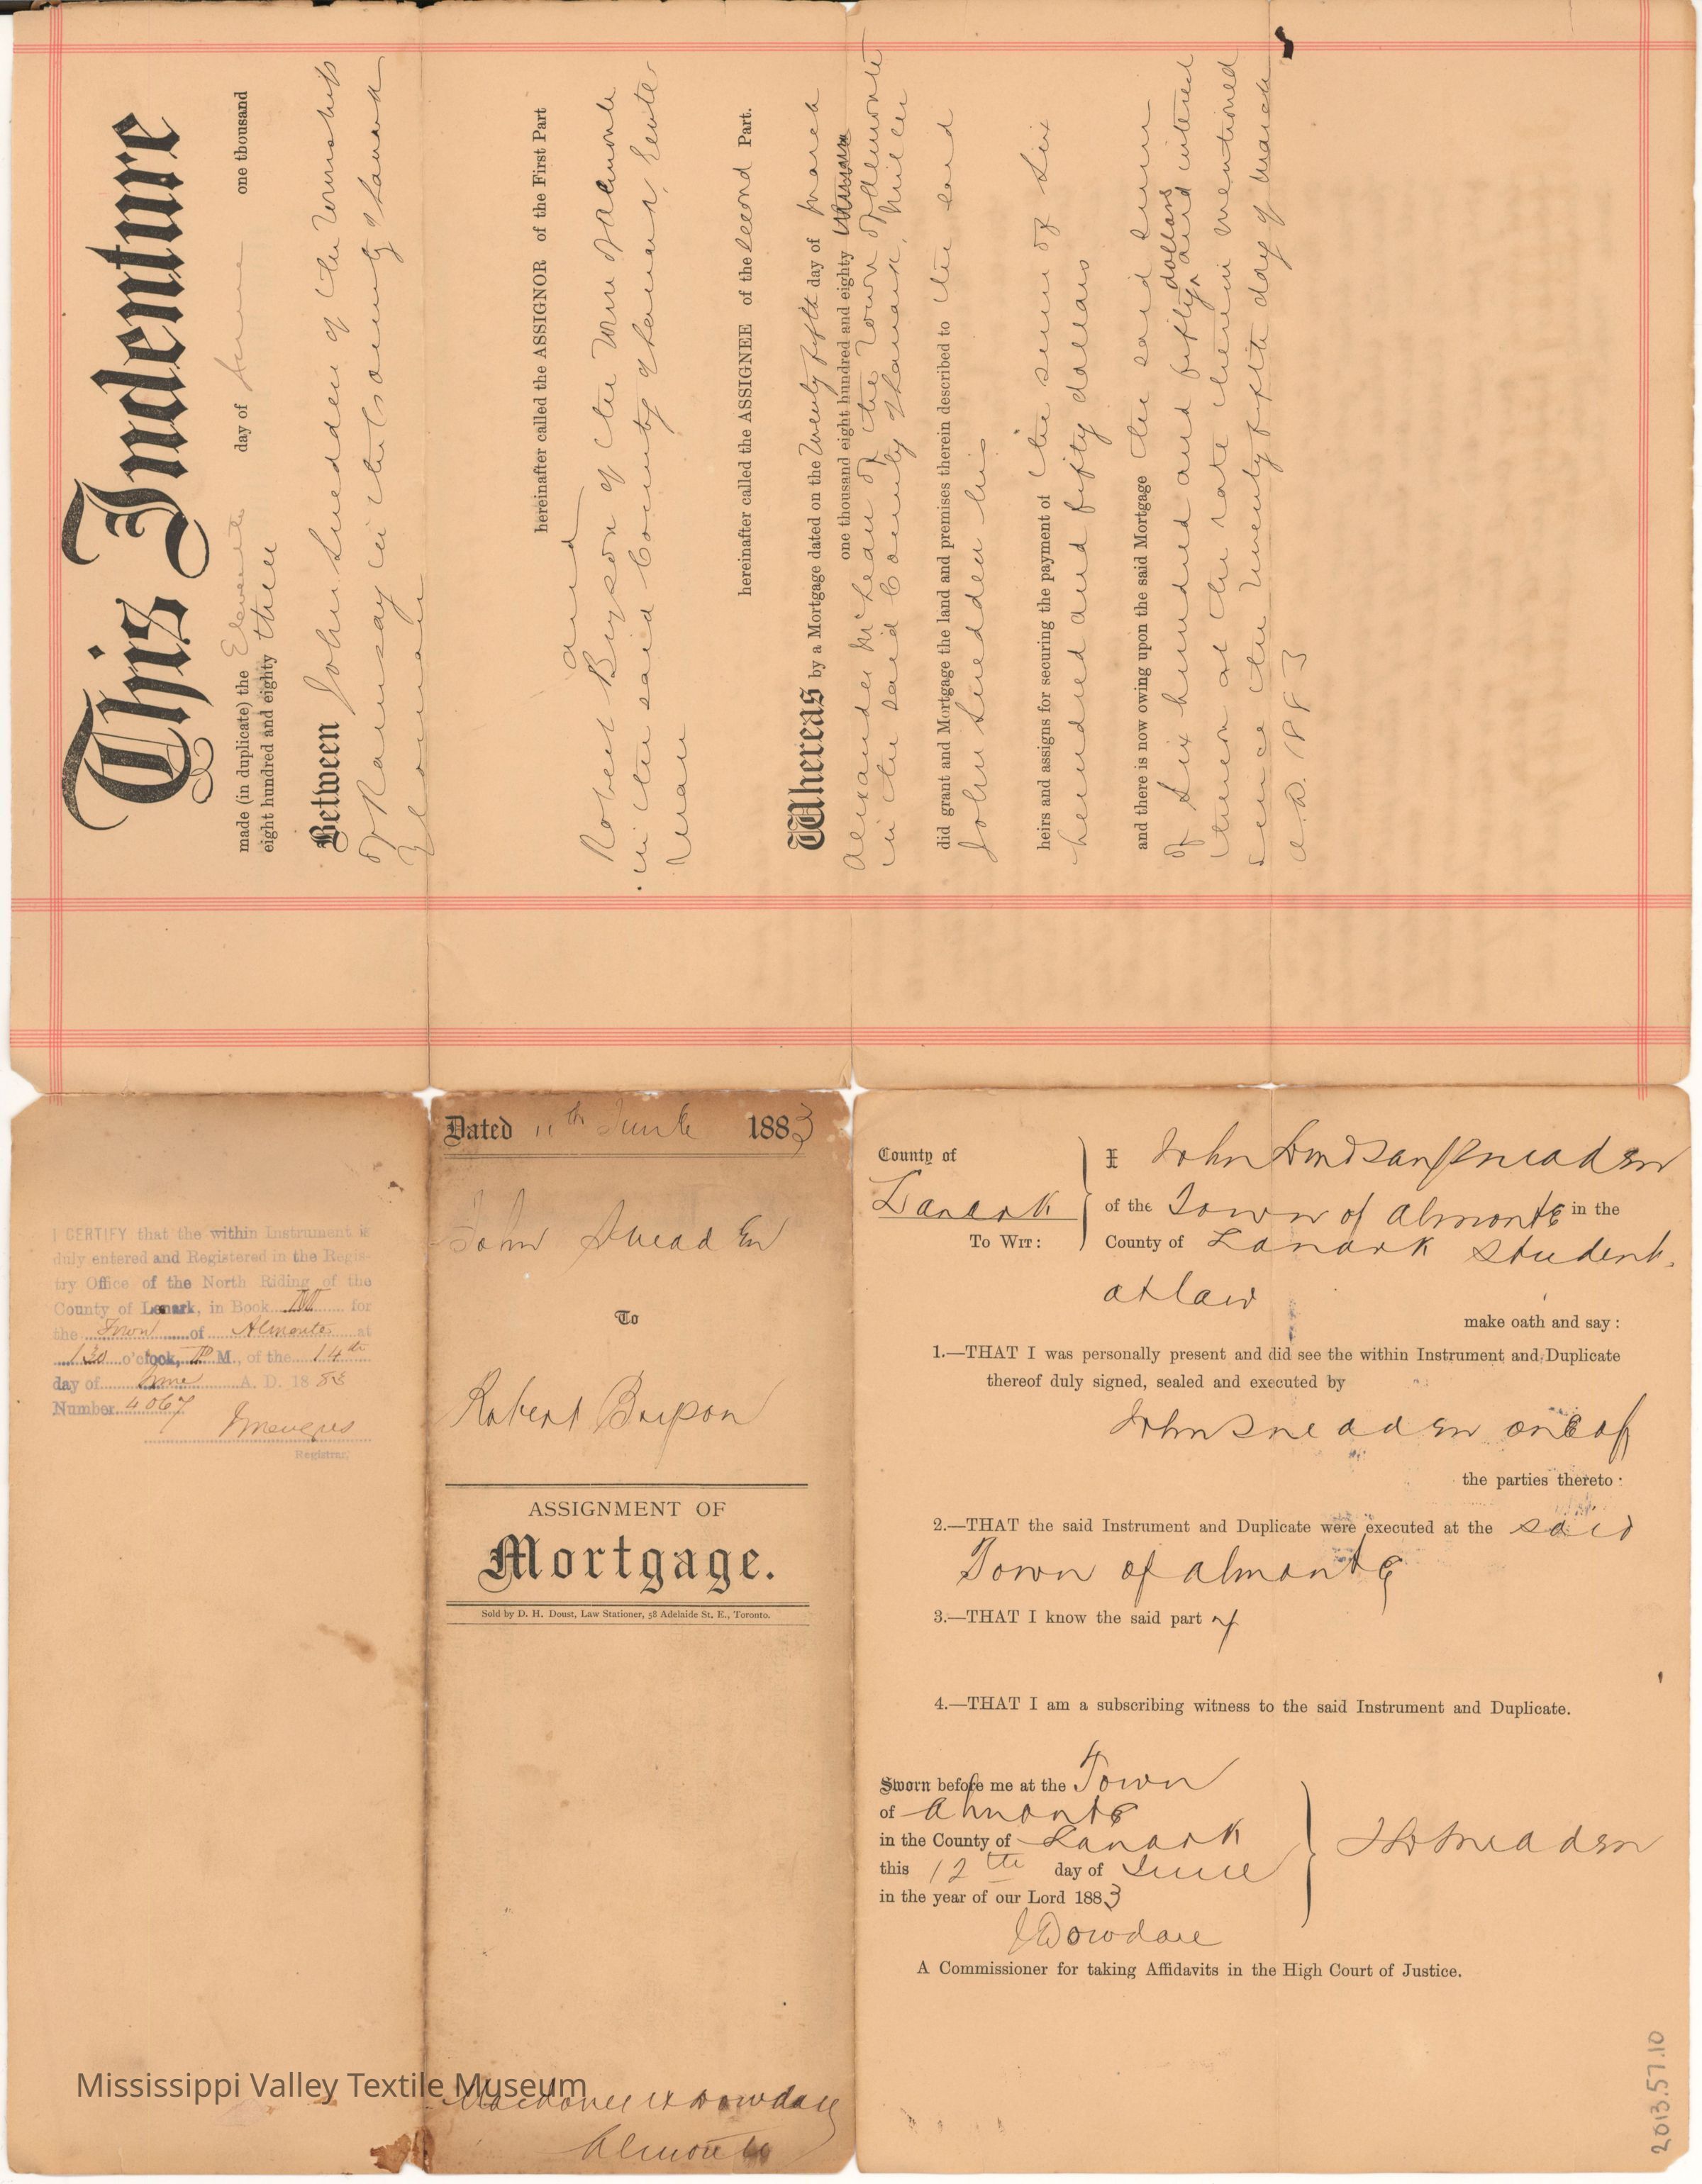 This Indenture
made (in duplicate) the Eleventh day of June one thousand
eight hundred and eighty three
Between John Sneadden of the Township
of Ramsay in the County of Lanark
Yeoman
hereinafter called the ASSIGNOR of the First Part
and
Robert Bryson of the Town of Almonte
in the said County of Lanark, Gentle
man
hereinafter called the ASSIGNEE of the Second Part.
Whereas by a Mortgage dated on the Twenty fifth day of March
one thousand eight hundred and eighty
Alexander McLean of the Town of Almonte
in the said County of Lanark, Miller
did grant and Mortgage the land and premises therein described to the said
John Sneadden his
heirs and assigns for securing the payment of the sum of Six
hundred and fifty dollars
and there is now owing upon the said Mortgage the said sum
of Six hundred and fifty dollars and interest
thereon at the rate therein mentioned
since the twenty fifth day of March
A.D. 1883
I CERTIFY that the within Instrument is
duly entered and Registered in the Regis-
try Office of the North Riding of the
County of Lanark, in Book for
the Town of Almonte at
1 30 o'clock, P M., of the 14th
day of June A. D. 1883
Number 4067
Registrar.
Dated 11th June 1883
John Sneaden
To
Robert Bryson
ASSIGNMENT OF
Mortgage.
Sold by D. H. Doust, Law Stationer, 58 Adelaide St. E., Toronto.
Dowdall
Almonte
County of
Lanark
To Wit:
I John Lindsay Sneaden
of the Town of Almonte in the
County of Lanark Student
at law
make oath and say:
1.—THAT I was personally present and did see the within Instrument and Duplicate
thereof duly signed, sealed and executed by
John Sneaden one of
the parties thereto:
2.—THAT the said Instrument and Duplicate were executed at the said
Town of Almonte
3.—THAT I know the said part y
4.—THAT I am a subscribing witness to the said Instrument and Duplicate.
Sworn before me at the Town
of Almonte
in the County of Lanark
this 12th day of June
in the year of our Lord 1883
J L Sneaden
J Dowdall
A Commissioner for taking Affidavits in the High Court of Justice.
2013.57.10
Mississippi Valley Textile Museum